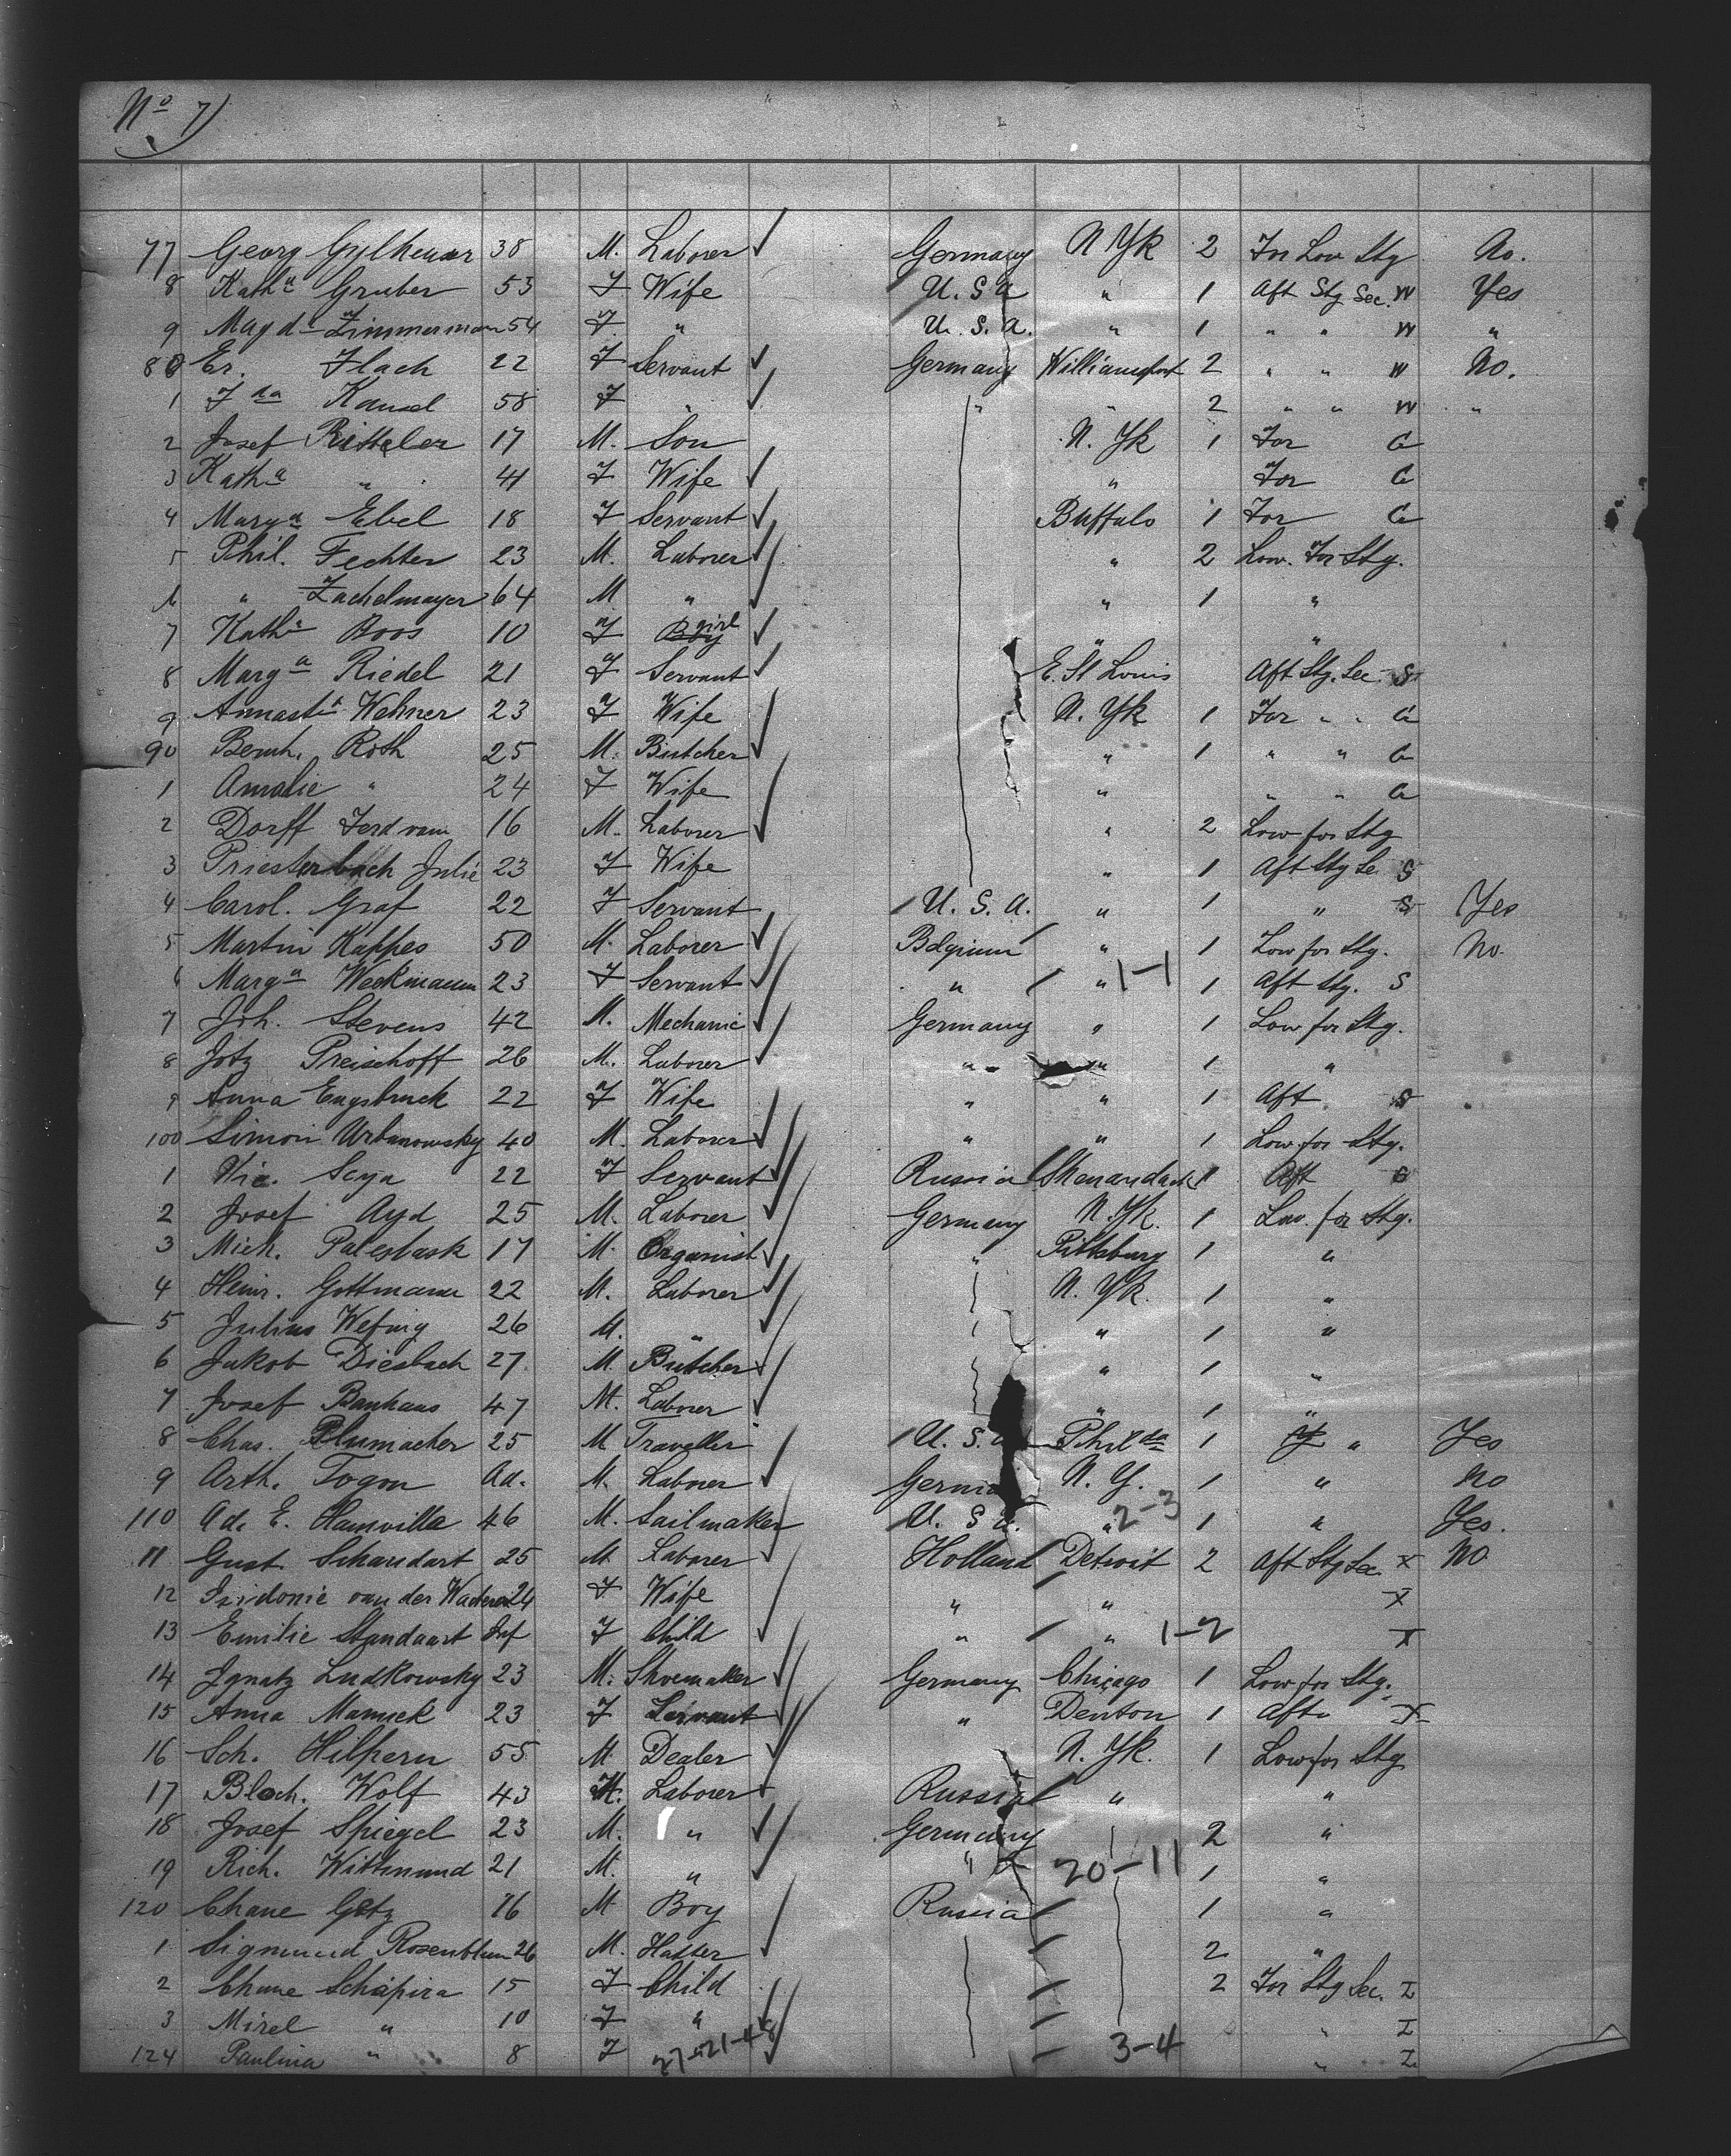 No 7)
77 Georg Gylheuser 38 M. Laborer Germany N Yk 2 For Low Stg No.
8 Katha Gruber 53 F Wife U.S.A " 1 Aft Stg Sec. W Yes
9 Magda Zimmerman 54 F. " U.S.A. " 1 " " W "
80 Er. Flach 22 F Servant Germany Williamsport 2 " " W No.
1 Kausel 58 F " " " 2 " " W "
2 Josef Ritteler 17 M. Son N. Yk 1 For C
3 Katha " 41 F Wife " For C
4 Marga Ebel 18 F Servant Buffalo 1 For C
5 Phil. Fechter 23 M. Laborer " 2 Low. For Stg.
6 " Zachelmayer 64 M " " 1 "
7 Katha Boos 10 F girl " "
8 Marga Riedel 21 F Servant E. St Louis Aft Stg. Sec. S
9 Wehner 23 F Wife N. Yk 1 For " " C
90 Bernh. Roth 25 M. Butcher " 1 " " C
1 Amalie " 24 F Wife " " " C
2 Dorff Ferd vom 16 M. Laborer " 2 Low for Stg
3 Priesterbach Julie 23 F Wife " 1 Aft Stg Se. S
4 Carol. Graf 22 F Servant U.S.A. " 1 " S Yes
5 Martin Kappes 50 M. Laborer Belgium " 1 Low for Stg. No.
6 Marga Weckmann 23 F Servant " " 1-1 1 Aft Stg. S
7 Joh. Stevens 42 M. Mechanic Germany " 1 Low for Stg.
8 Preischoff 26 M. Laborer " " 1 "
9 Anna Engsbruck 22 F Wife " " 1 Aft S
100 Simon Urbanowsky 40 M. Laborer " " 1 Low for Stg.
1 Vic. Seya 22 F Servant Russia Shenandoah 1 Aft
2 Josef Ayd 25 M. Laborer Germany N.Yk. 1 Low. for Stg.
3 Mich. Palesbask 17 M. Organist " Pittsburg 1 "
4 Heinr. Gottmann 22 M. Laborer N. Yk. 1 "
5 Julius Wefing 26 M. " " 1 "
6 Jakob Diesbach 27. M. Butcher " 1 "
7 Josef Banhaus 47 M. Laborer " 1 "
8 Chas. Plumacher 25 M Traveller U.S. Philda 1 " Yes
9 Arth. Togon Ad. M. Laborer Germa N. Y. 1 " No
110 Ad. E. Hamville 46 M. Sailmaker U.S.A. " 2-3 1 " Yes.
11 Gust. Schandart 25 M Laborer Holland Detroit 2 Aft Stg Sec. X No
12 van der 24 F Wife " " X
13 Emilie Standaart Inf F Child " " 1-2 X
14 Ignatz Ludkowsky 23 M. Shoemaker Germany Chicago 1 Low for Stg.
15 Anna Mamek 23 F Servant " Denton 1 Aft " X
16 Sch. Hilpern 55 M Dealer N. Yk. 1 Low for Stg
17 Bloch. Wolf 43 M. Laborer Russia " "
18 Josef Spiegel 23 M. " Germany 2 "
19 Rich. Wittmund 21 M. " " 20-11 1 "
120 Chane Getz 16 M Boy Russia 1 "
1 Sigmund Rosenblum 26 M. Hatter 2 "
2 Chane Schapira 15 F Child 2 For Stg Sec. I
3 Mirel " 10 F " " I
124 Paulina " 8 F 3-4 " I